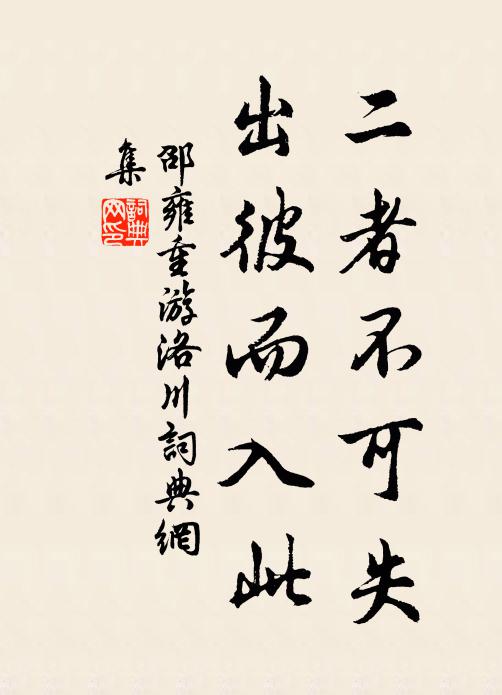 二者不可失
出彼而入此
邵雍重游洛川詞典網
集
詞典
网印